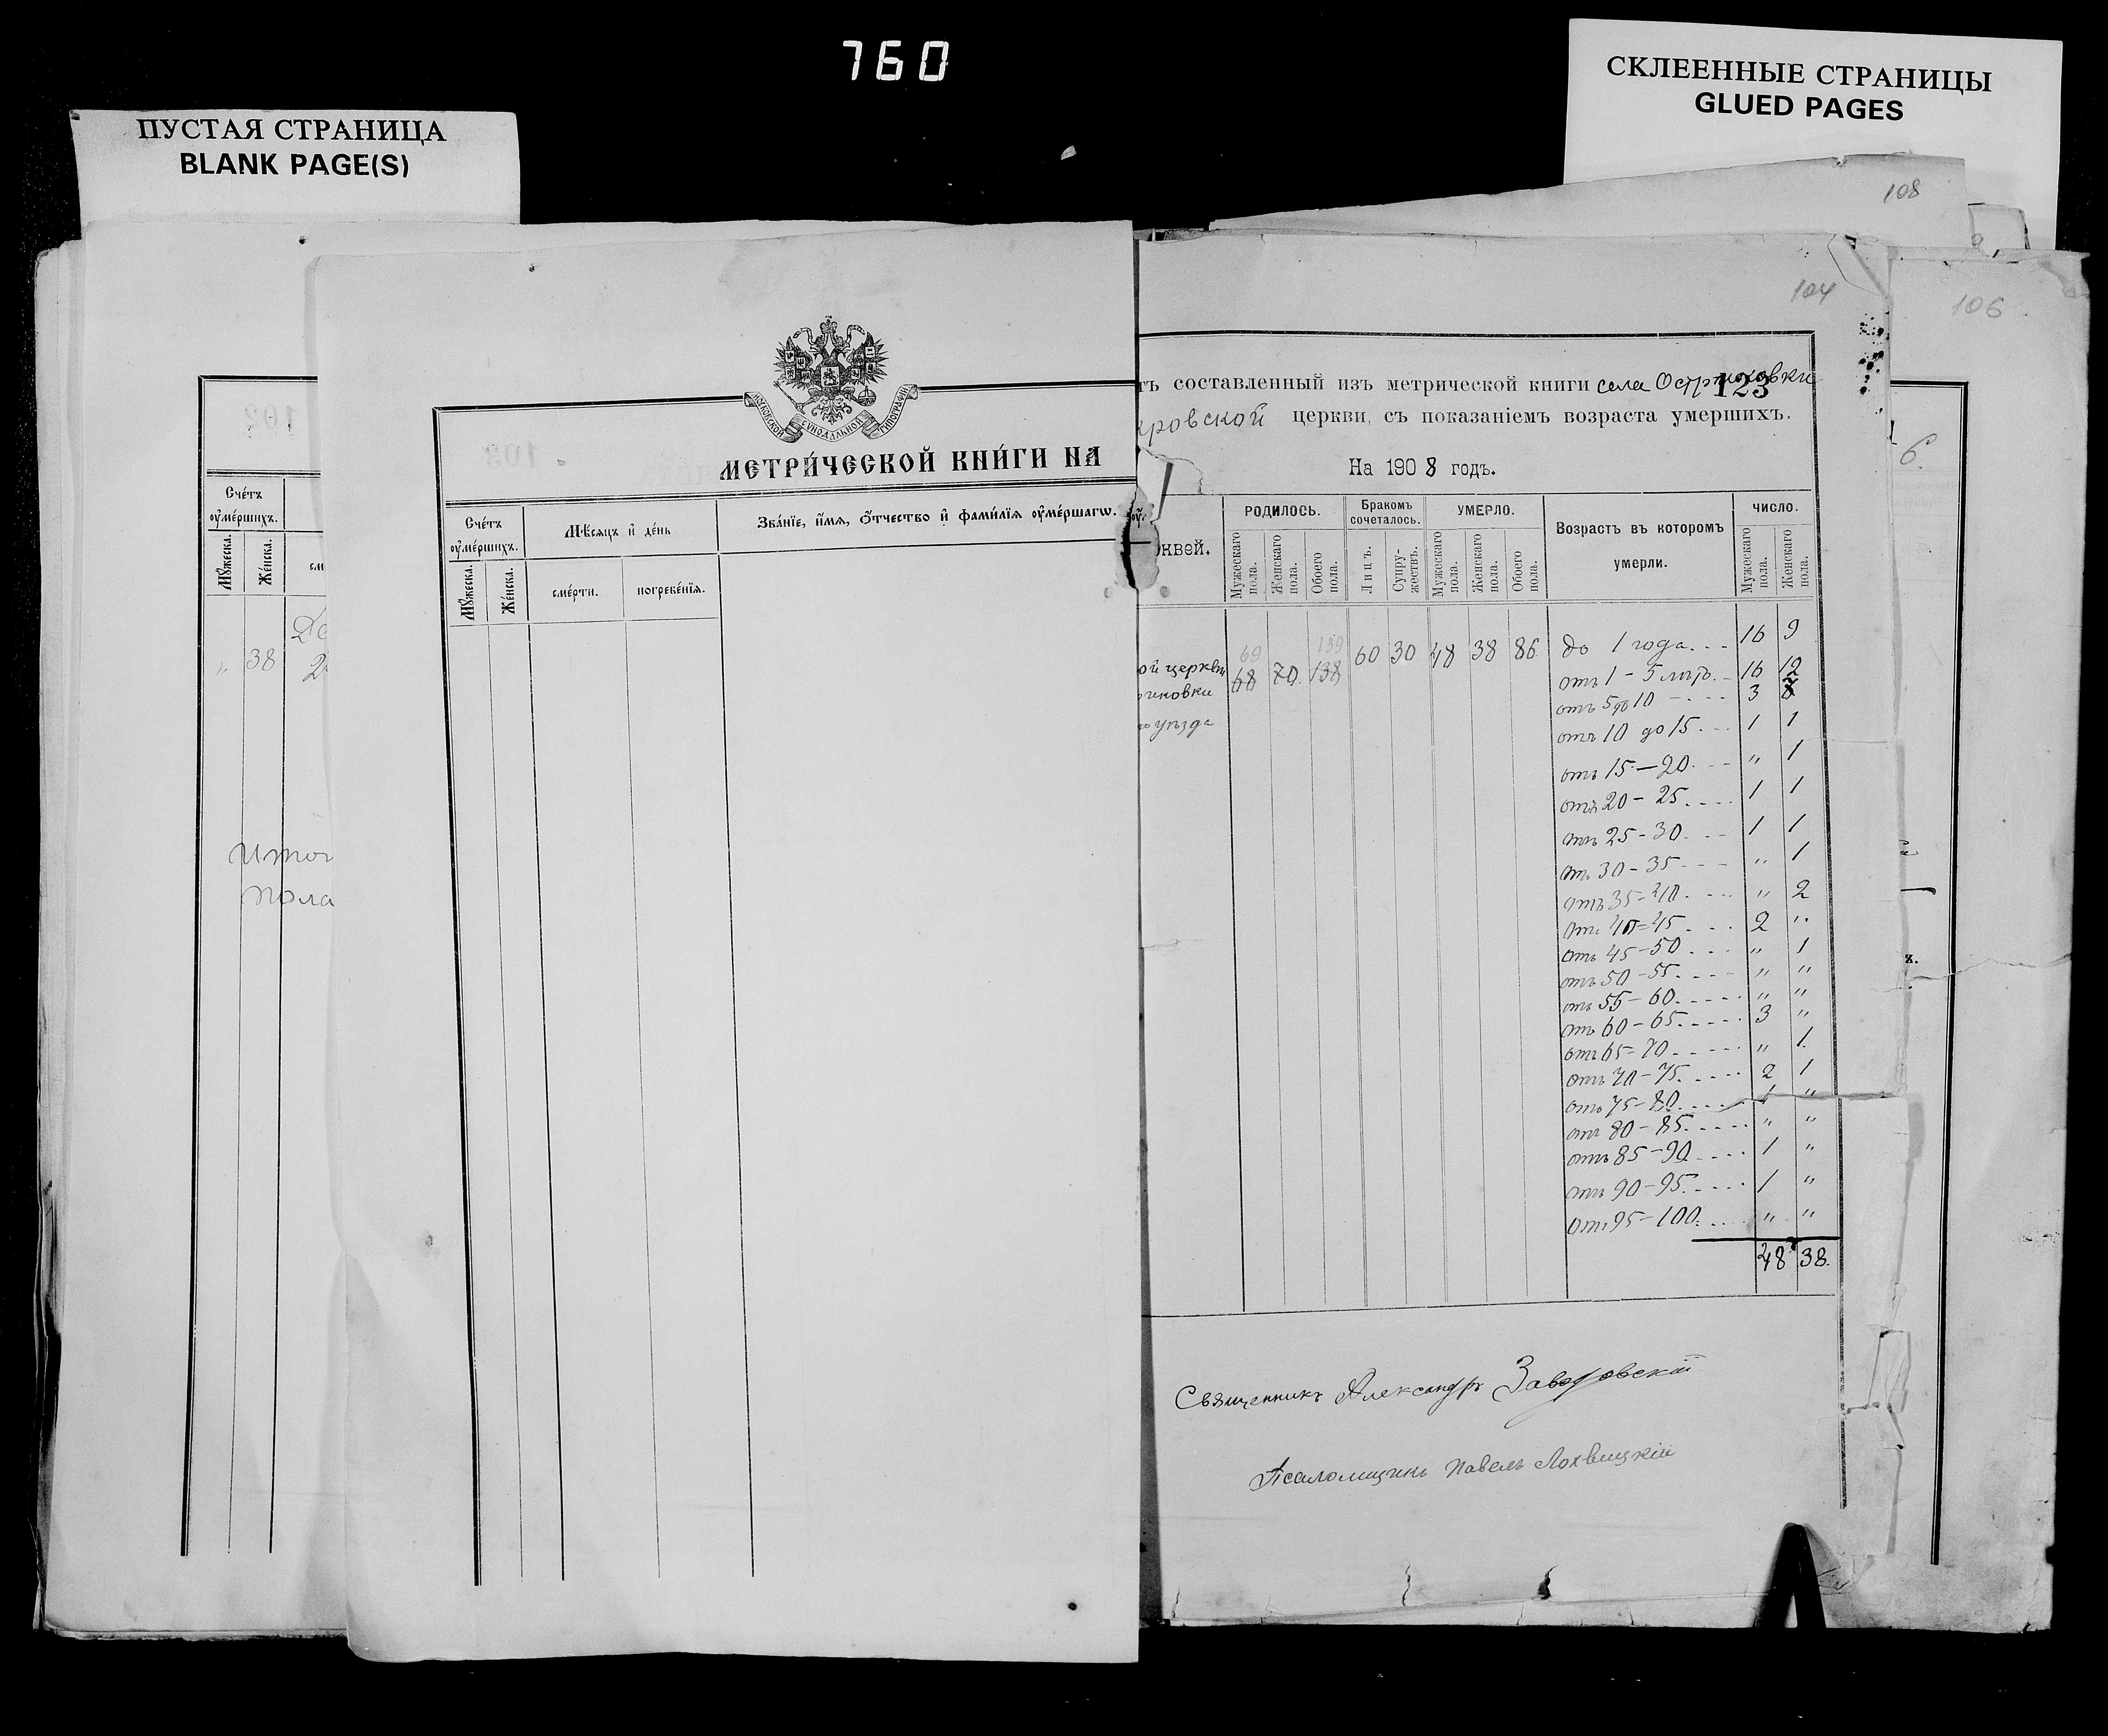 760
ПУСТАЯ СТРАНИЦА
BLANK PAGE(S)
СКЛЕЕННЫЕ СТРАНИЦЫ
GLUED PAGES
108
104
106
Счéтъ
ᲂумéршихъ.
Мꙋжеска.
Жéнска.
" 38
Итог
пола
МОСКОВСКОЙ СѴНОДАЛЬНОЙ ТИПОГРАФІИ
МЕТРИ́ЧЕСКОЙ КНИ́ГИ НА
Счéтъ
ᲂумéршихъ.
Мѣ́сяцъ и҆ де́нь
Зва́нїе, и҆́мя, ѻ҆́тчество и҆ фами́лїя ᲂу҆ме́ршагѡ.
Мꙋжеска.
Жéнска.
сме́рти.
погребе́нїя.
тъ составленный изъ метрической книги села Остриковки
123
кровской церкви, съ показаніемъ возраста умершихъ.
На 1908 годъ.
рквей.
РОДИЛОСЬ.
Бракомъ сочеталось.
УМЕРЛО.
Возрастъ въ которомъ умерли.
ЧИСЛО.
Мужескаго пола.
Женскаго пола.
Обоего пола.
Лицъ.
Супружествъ.
Мужескаго пола.
Женскаго пола.
Обоего пола.
Мужескаго пола.
Женскаго пола.
69 139
ой церкви 68 70 138 60 30 48 38 86
риковки
уѣзда
до 1 года 16 9
отъ 1-5 лѣтъ 16 12
отъ 5 до 10 3
отъ 10 до 15 1 1
отъ 15-20 " 1
отъ 20-25 1 1
отъ 25-30 1 1
отъ 30-35 " 1
отъ 35-40 " 2
отъ 40-45 2 "
отъ 45-50 " 1
отъ 50-55 " "
отъ 55-60 " "
отъ 60-65 3 "
отъ 65-70 " 1
отъ 70-75 2 1
отъ 75-80 1 "
отъ 80-85 " "
отъ 85-90 1 "
отъ 90-95 1 "
отъ 95-100 " "
48 38.
Священникъ Александръ Заводовскій
Псаломщикъ Павелъ Лохвицкій